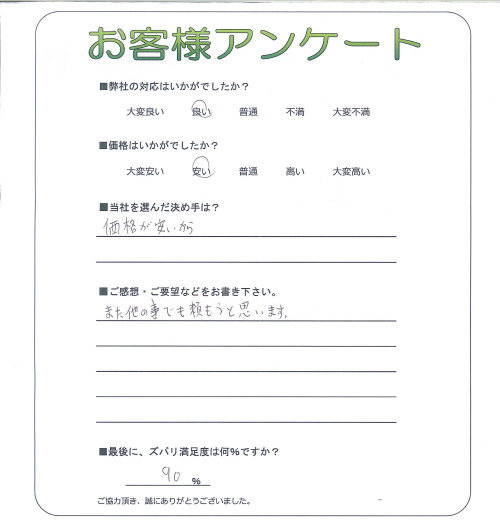 お客様アンケート
■弊社の対応はいかがでしたか？
大変良い 良い 普通 不満 大変不満
■価格はいかがでしたか？
大変安い 安い 普通 高い 大変高い
■当社を選んだ決め手は？
価格が安いから
■ご感想・ご要望などをお書き下さい。
また他の事でも頼もうと思います。
■最後に、ズバリ満足度は何%ですか？
90 %
ご協力頂き、誠にありがとうございました。